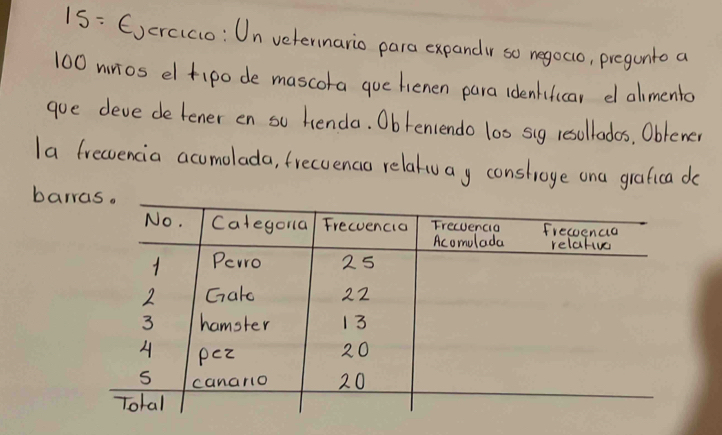 15= Ejercicio: Un veterinario para expandir so negocio, pregunto a
100 niños el tipo de mascota que tienen para identificar el alimento
que deve de tener en su tienda. Obteniendo los sig resultados, Obtener
la frecuencia acumolada, frecuencia relativa y constroye una grafica de
barras.
No. Categoria Frecuencia Frecuencia Acomulada Frecuencia relativa
1 Perro 25
2 Gato 22
3 hamster 13
4 pez 20
5 canario 20
Total